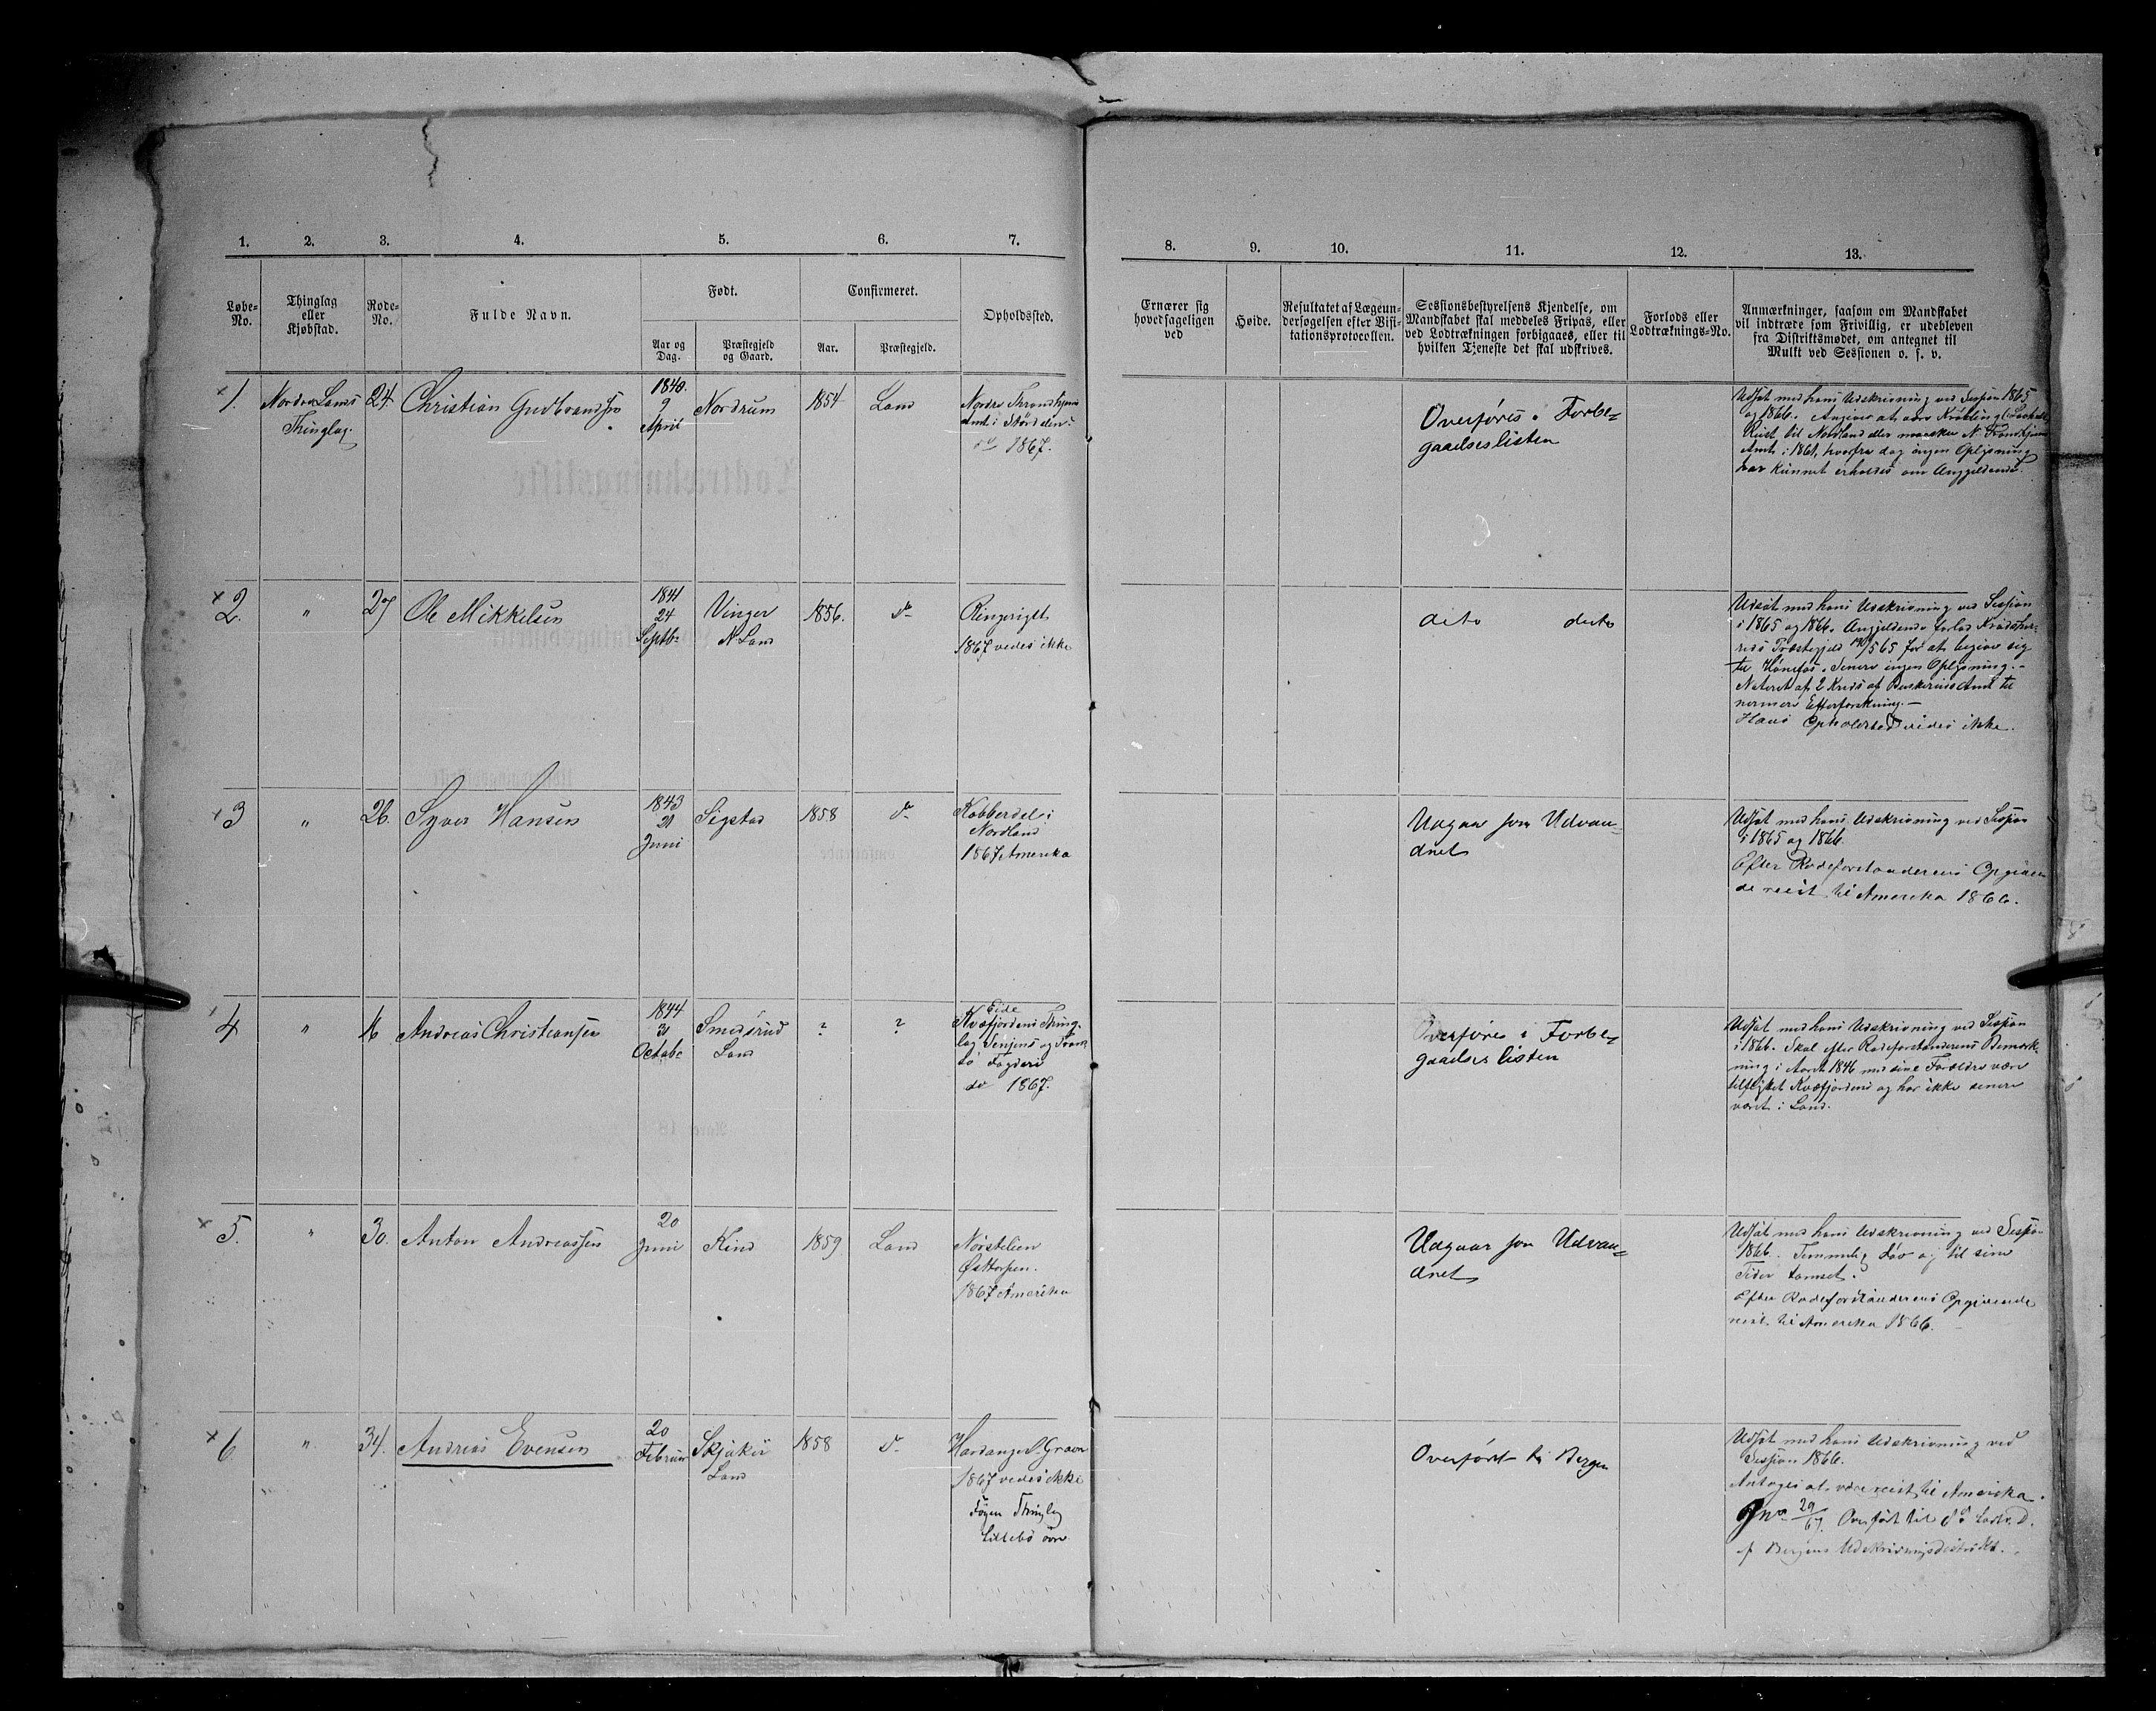 1. 2. 3. 4. 5. 6. 7. 8. 9. 10. 11. 12. 13.
Løbe-
No.
Thinglag
eller
Kjøbstad.
Rode-
No.
Fulde Navn.
Født.
Aar og
Dag.
Præstegjeld
og Gaard.
Confirmeret.
Aar.
Præstegjeld.
Opholdssted.
Ernærer sig
hovedsageligen
ved
Høide.
Resultatet af Lægeun-
dersøgelsen efter Visi-
tationsprotocollen.
Sessionsbestyrelsens Kjendelse, om
Mandskabet skal meddeles Fripas, eller
ved Lodtrækningen forbigaaes, eller til
hvilken Tjeneste det skal udskrives.
Forlods eller
Lodtræknings-No.
Anmærkninger, saasom om Mandskabet
vil indtræde som Frivillig, er udebleven
fra Distriktsmødet, om antegnet til
Mulkt ved Sessionen o. s. v.
1.
Nordre Lands
Thinglag.
24.
Christian Gudbrandsen
1840.
9
April
Nordrum
1854
Land
Nordre Throndhjems
Amt i
do 1867.
Overføres i Forbi-
gaaelseslisten
Udsat med hans Udskrivning ved Session 1865
og 1866. Angives at være
Reist til Nordland eller maaske N. Trondhjems
Amt i 1861, hvorfra dog ingen Oplysning
har kunnet erholdes om Angjeldende.
2.
"
27
Ole Mikkelsen
1841
24
Septbr
Vinger
N. Land
1856.
do
Ringeriget
1867 vides ikke
dito dito
Udsat med hans Udskrivning ved Session
i 1865 og 1866. Angjeldende forlod Krødsher-
reds Præstegjeld 565 for at begive sig
til Hønefos. Senere ingen Oplysning. -
Noteret af 2 Kreds af Buskeruds Amt til
nærmere Efterforskning. -
Hans Opholdsted vides ikke.
3
"
26.
Syver Hansen
1843
21
Juni
Sigstad
1858
do
Kobberdel i
Nordland
1867 Amerika
Udgaar som Udvan-
dret
Udsat med hans Udskrivning ved Session
i 1865 og 1866.
Efter Rodeforstanderens Opgiven-
de reist til Amerika 1866.
4
"
16
Andreas Christiansen
1844
31
Octobr
Smedsrud
Land
?
?
Eide
Kvæfjordens Thing-
lag Senjens og Trom-
sø Fogderi
do 1867.
Overføres i Forbi-
gaaelseslisten
Udsat med hans Udskrivning ved Session
i 1866. Skal efter Rodeforstanderens Bemærk-
ning i Aaret 1846 med sine Forældre være
tilflyttet Kvæfjorden og har ikke senere
været i Land.
5.
"
30.
Anton Andreassen
20
Juni
Kind
1859
Land
Nørstelien
Østtorpen.
1867 Amerika
Udgaar som Udvan-
dret
Udsat med hans Udskrivning ved Session
1866. Temmelig døv og til sine
Tider
Efter Rodeforstanderens Opgivende
reist til Amerika 1866.
6
"
34.
Andreas Evensen
20
Februar
Skjaker
Land
1858
do
Hardanger Graven
1867 vides ikke
Thinglag
Lillebø øvre
Overført til Bergen
Udsat med hans Udskrivning ved
Session 1866.
Antages at være reist til Amerika.
29/67. Overført til
af Bergens Udskrivningsdistrikt.